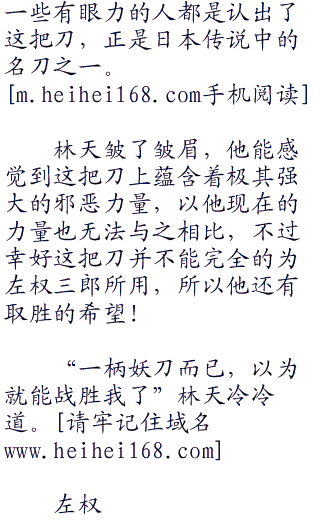 一些有眼力的人都是认出了
这把刀，正是日本传说中的
名刀之一。
[m.heihei168.com手机阅读]
林天皱了皱眉，他能感
觉到这把刀上蕴含着极其强
大的邪恶力量，以他现在的
力量也无法与之相比，不过
幸好这把刀并不能完全的为
左权三郎所用，所以他还有
取胜的希望！
“一柄妖刀而已，以为
就能战胜我了”林天冷冷
道。[请牢记住域名
www.heihei168.com]
左权